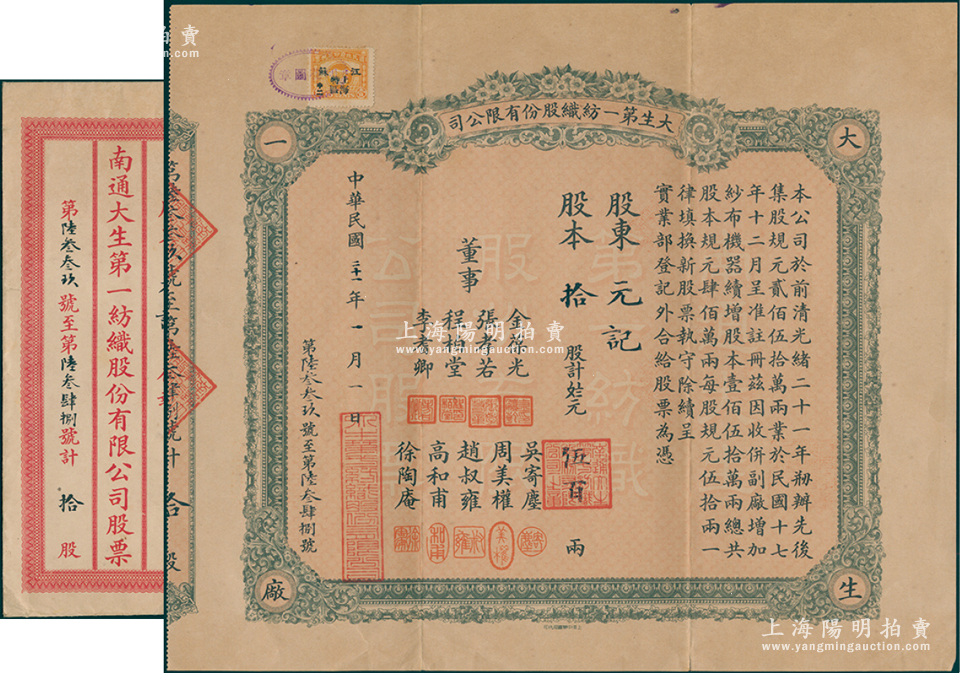 南通大生第一紡織股份有限公司股票
第陸叁叁玖號至第陸叁肆捌號計 拾 股
江蘇
上海
大生第一紡織股份有限公司
大
生
一
廠
本公司於前清光緒二十一年刱辦先後
集股規元貳佰伍拾萬兩業於民國十七
年十二月呈准註冊茲因收併副廠增加
紗布機器續增股本壹佰伍拾萬兩總共
股本規元肆佰萬兩每股規元伍拾兩一
律填換新股票執守除續呈
實業部登記外合給股票為憑
股東 元記
股本 拾 股計規元 伍百 兩
董事
吳寄塵
張若
周美權
程柏堂
趙叔雍
李卿
高和甫
徐陶庵
中華民國三十一年一月一日
第陸叁叁玖號至第陸叁肆捌號
上海陽明拍賣
www.yangmingauction.com
上海陽明拍賣
www.yangmingauction.com
上海陽明拍賣
www.yangmingauction.com